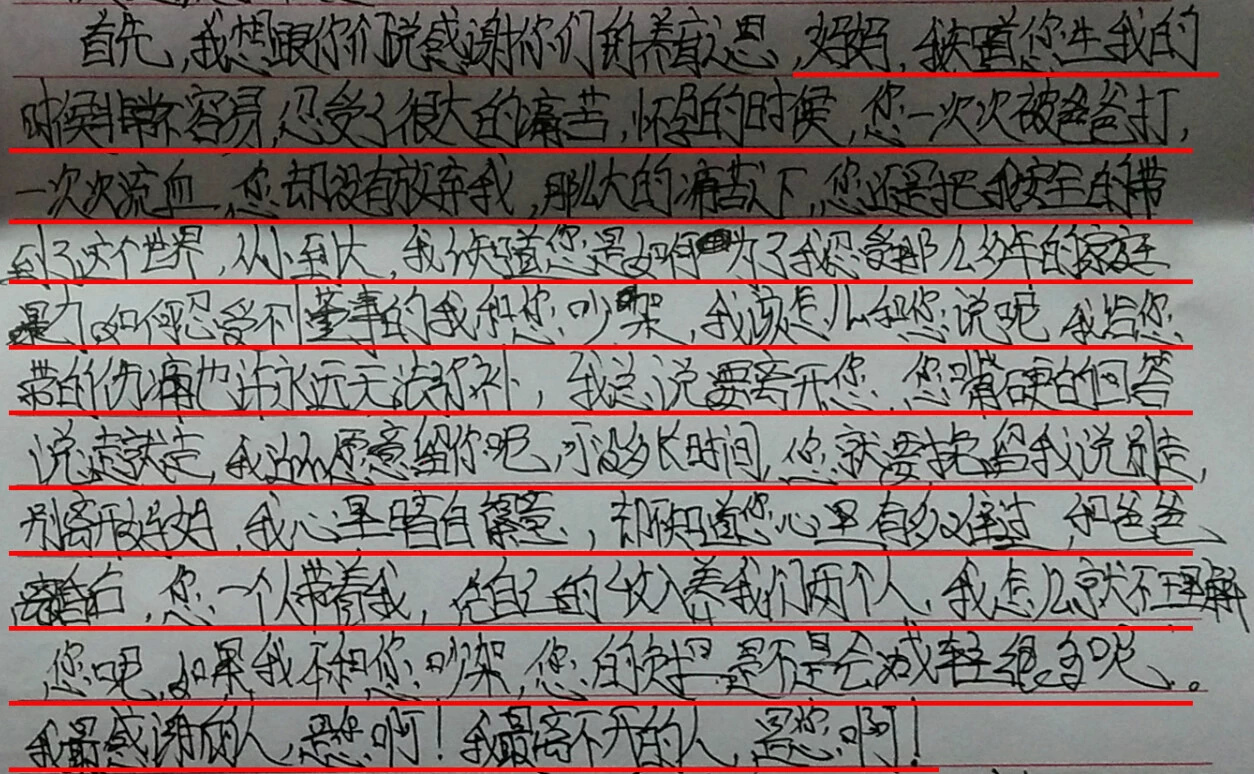 首先,我想跟你们说感谢你们的养育之恩,妈妈,我知道您生我的
时候非常不容易,忍受了很大的痛苦,怀孕的时候,您一次次被爸爸打,
一次次流血,您却没有放弃我,那么大的痛苦下,您还是把我安全的带
到了这个世界,从小到大,我不知道您是如何为了我忍受那么多年的家庭
暴力,如何忍受不懂事的我和您吵架,我该怎么和您说呢,我给您
带的伤痛也许永远无法弥补,我总说要离开您,您嘴硬的回答
说走就走,我还不愿意留你呢,可没多长时间,您就要挽留我说别走,
别离开好好,我心里暗自得意,却不知道您心里有多难过,和爸爸
离婚后,您一个人带着我,凭自己的收入养我们两个人,我怎么就不理解
您呢,如果我不和您吵架,您的负担是不是会减轻很多呢。
我最感谢的人,是您啊!我最离不开的人,是您啊!